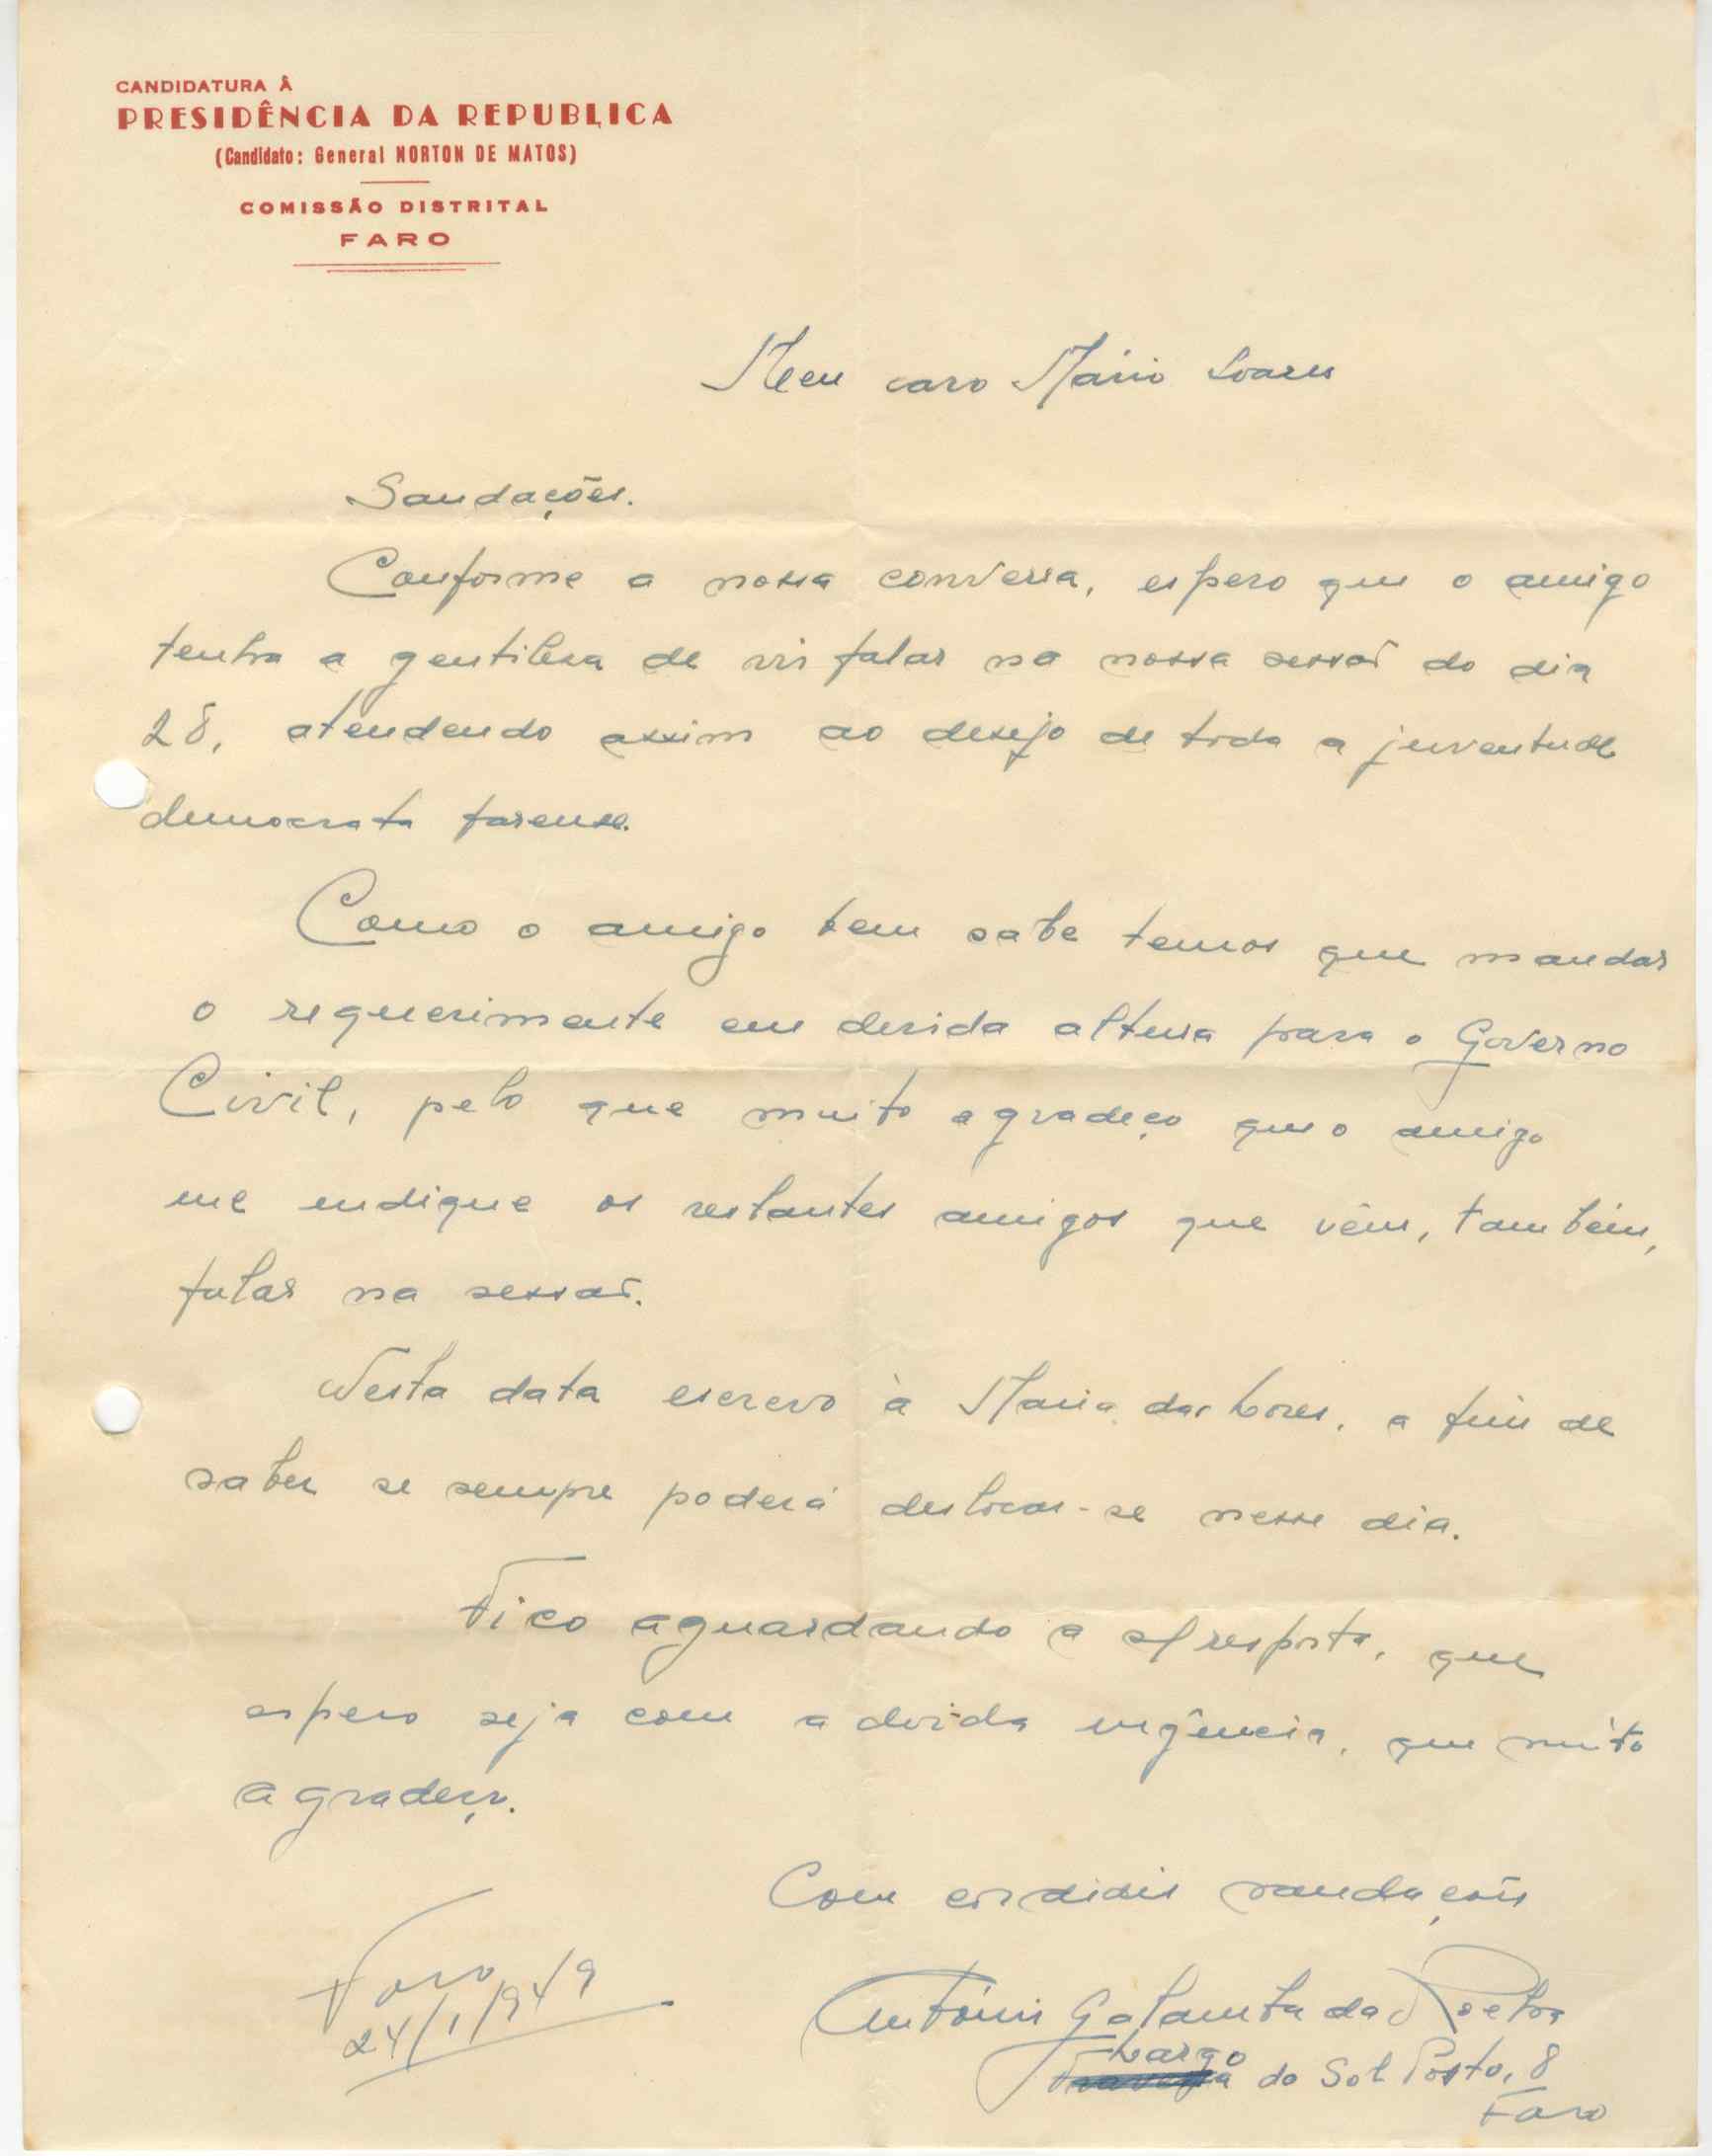 CANDIDATURA Â
PRESIDÊNCIA DA REPUBLICA
(Candidato: General NORTON DE MATOS)
COMISSÃO DISTRITAL
FARO
Meu caro Mário Soares
Saudações.
Conforme a nossa conversa, espero que o amigo
tenha a gentilesa de vir falar na nossa sessão do dia
28, atendendo assim ao desejo de toda a juventude
democrata farense.
Como o amigo bem sabe temos que mandar
o requerimente em devida altura para o Governo
Civil, pelo que muito agradeço que o amigo
me endique os restantes amigos que vêm, também,
falar na sessão.
Nesta data escrevo à Maria das Lores, a fim de
saber se sempre poderá deslocar-se nesse dia.
Fico aguardando a s/ resposta, que
espero seja com a devida urgência, que muito
agradeço.
Com cordiais saudações
Faro
24/1/949
António Galamba da Rocha
Largo
do Sol Posto, 8
Faro